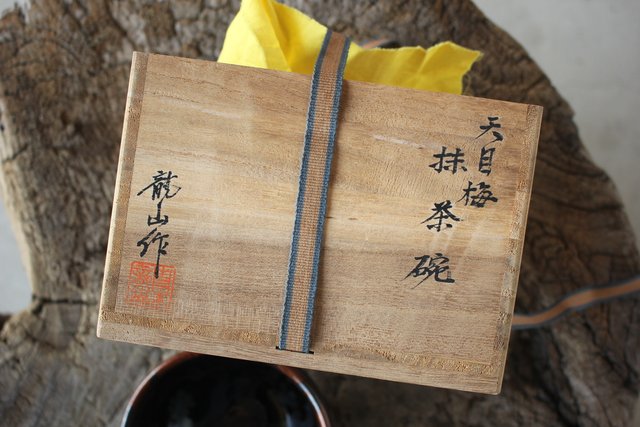 天目梅
抹茶碗
龍山作